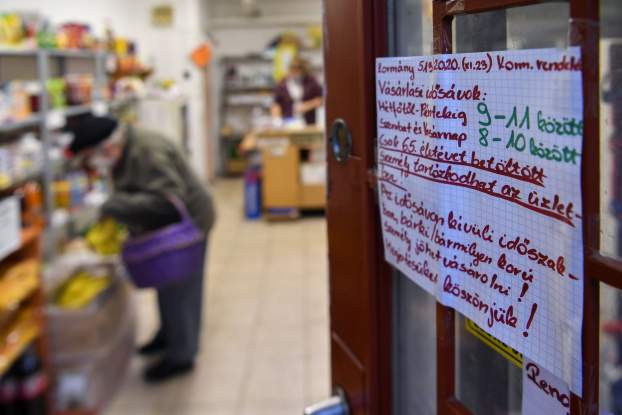 Kormány 513/2020. (XI.23) Korm. rendelet
Vásárlási idősávok:
Hétfőtől-Péntekig 9-11 között
Szombat és Vasárnap 8-10 között
Csak 65. életévét betöltött
személy tartózkodhat az üzlet-
ben!!
Az idősávon kívüli időszak-
ban, bárki/bármilyen korú
személy jöhet vásárolni!
Megértésüket köszönjük!
Rend